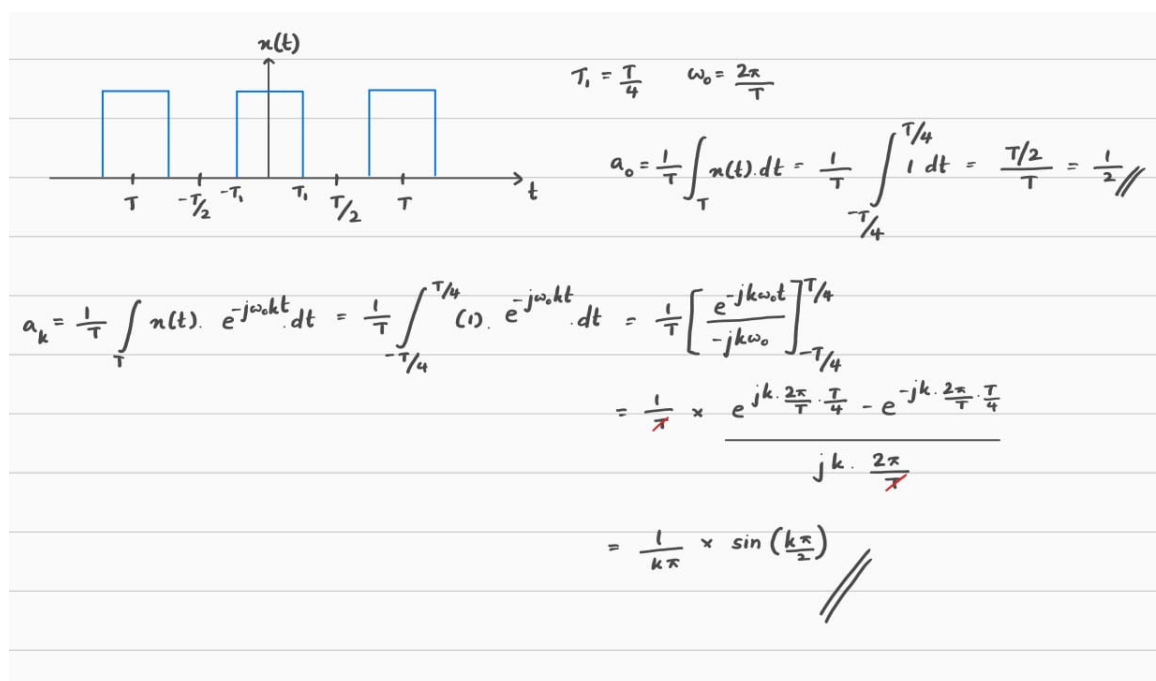 x(t)
T -T/2 -T₁ T₁ T/2 T t
T₁ = T/4 ω₀ = 2π/T
a₀ = 1/T ∫_T x(t).dt = 1/T ∫_{-T/4}^{T/4} 1 dt = (T/2)/T = 1/2 //
a_k = 1/T ∫_T x(t). e^{-jω₀kt}.dt = 1/T ∫_{-T/4}^{T/4} (1). e^{-jω₀kt}.dt = 1/T [e^{-jkω₀t}/(-jkω₀)]_{-T/4}^{T/4}
= 1/T × (e^{jk.2π/T.T/4} - e^{-jk.2π/T.T/4})/(jk. 2π/T)
= 1/(kπ) × sin (kπ/2) //